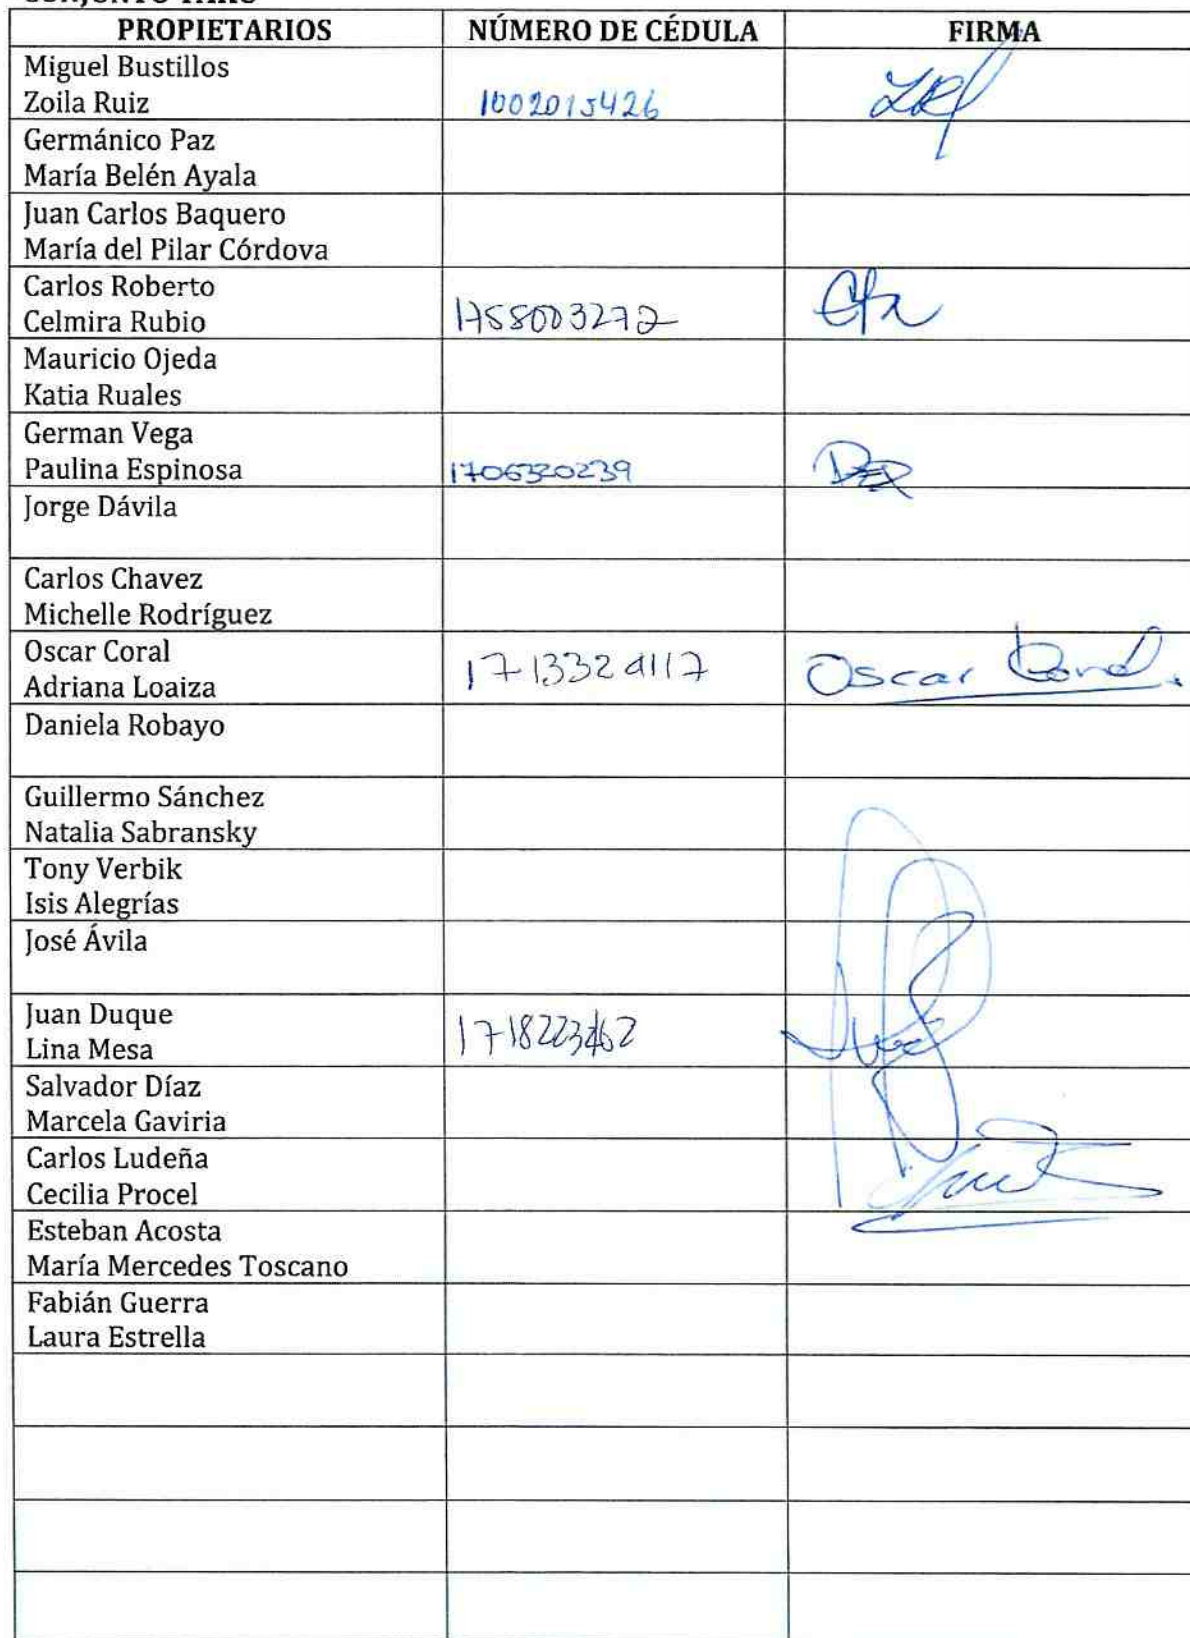 PROPIETARIOS NÚMERO DE CÉDULA FIRMA
Miguel Bustillos
Zoila Ruiz 1002015426
Germánico Paz
María Belén Ayala
Juan Carlos Baquero
María del Pilar Córdova
Carlos Roberto
Celmira Rubio 1755003272
Mauricio Ojeda
Katia Ruales
German Vega
Paulina Espinosa 1706320239
Jorge Dávila
Carlos Chavez
Michelle Rodríguez
Oscar Coral
Adriana Loaiza Oscar Coral.
Daniela Robayo
Guillermo Sánchez
Natalia Sabransky
Tony Verbik
Isis Alegrías
José Ávila
Juan Duque
Lina Mesa
Salvador Díaz
Marcela Gaviria
Carlos Ludeña
Cecilia Procel
Esteban Acosta
María Mercedes Toscano
Fabián Guerra
Laura Estrella